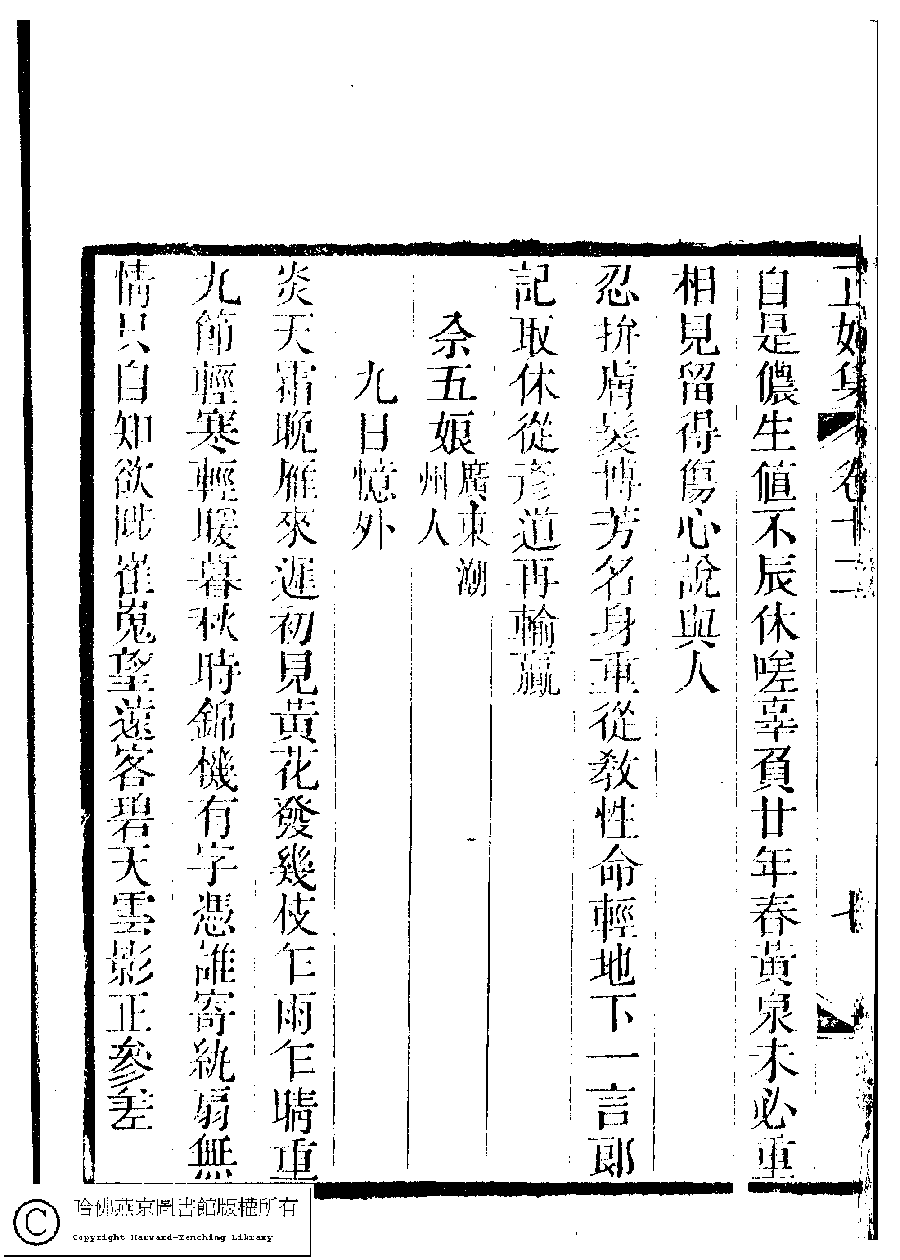 正始集 卷十二 七
自是儂生値不辰休嗟辜負廿年春黃泉未必重
相見留得傷心說與人
忍拚膚髮博芳名身重從教性命輕地下一言郎
記取休從彦道再輸贏
余五娘 廣東潮州人
九日憶外
炎天霜晩雁來遲初見黃花發幾伎乍雨乍晴重
九節輕寒輕暖暮秋時錦機有字憑誰寄紈扇無
情只自知欲陟崔嵬望遠客碧天雲影正參差
哈佛燕京圖書館版權所有
Copyright Harvard-Yenching Library